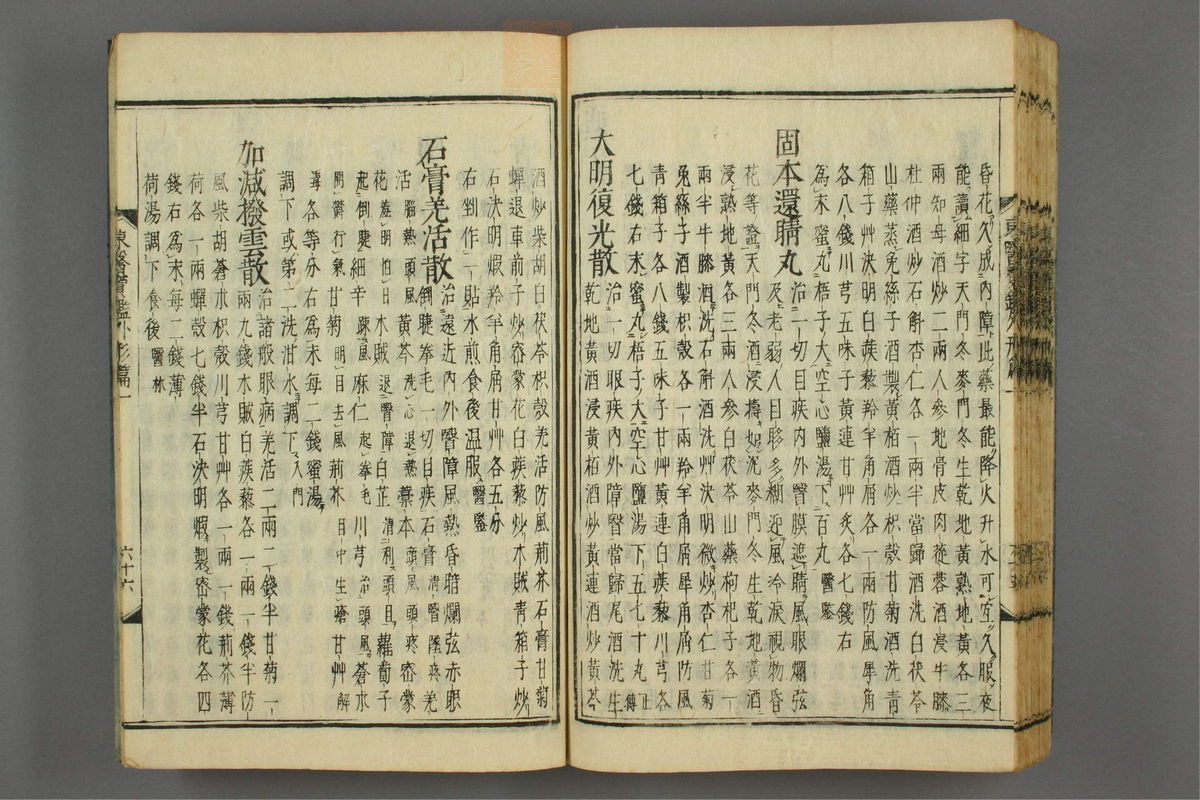 昏花久成內障此藥最能降火升水可宜久服夜
能讀細字天門冬麥門冬生乾地黃熟地黃各三
兩知母酒炒二兩人參地骨皮肉蓯蓉酒浸牛膝
杜仲酒炒石斛杏仁各一兩半當歸酒洗白茯苓
山藥蒸兔絲子酒製黃栢酒炒枳殼甘菊酒洗青
箱子艸決明白蒺藜羚羊角屑各一兩防風犀角
各八錢川芎五味子黃連甘艸炙各七錢右
爲末蜜丸梧子大空心鹽湯下百丸醫鑒
固本還睛丸治一切目疾內外瞖膜遮睛風眼爛弦
及老弱人目眵多糊迎風冷淚視物昏
花等證天門冬酒浸擣如泥麥門冬生乾地黃酒
浸熟地黃各三兩人參白茯苓山藥枸杞子各一
兩半牛膝酒洗石斛酒洗艸決明微炒杏仁甘菊
兔絲子酒製枳殼各一兩羚羊角屑犀角屑防風
青箱子各八錢五味子甘艸黃連白蒺藜川芎各
七錢右末蜜丸梧子大空心鹽湯下五七十丸正傳
大明復光散治一切眼疾內外障瞖當歸尾酒洗生
乾地黃酒浸黃栢酒炒黃連酒炒黃芩
酒炒柴胡白茯苓枳殼羌活防風荊芥石膏甘菊
蟬退車前子炒密蒙花白蒺藜炒木賊青箱子炒
石決明煆羚羊角屑甘艸各五分
右剉作一貼水煎食後温服醫鑒
石膏羌活散治遠近內外瞖障風熱昏暗爛弦赤眼
倒睫拳毛一切目疾石膏消瞖墜疼羌
活腦熱頭風黃芩洗心退熱藁本頭風頭疼密蒙
花羞明怕日木賊退瞖障白芷清利頭目蘿蔔子
起倒睫細辛疎風麻仁起拳毛川芎治頭風蒼朮
開鬱行氣甘菊明目去風荊芥目中生瘡甘艸解
毒各等分右爲末每二錢蜜湯
調下或第二洗泔水調下入門
加減撥雲散治諸般眼病羌活二兩二錢半甘菊一
兩九錢木賊白蒺藜各一兩一錢半防
風柴胡蒼朮枳殼川芎甘艸各一兩一錢荊芥薄
荷各一兩蟬殼七錢半石決明煆製密蒙花各四
錢右爲末每二錢薄
荷湯調下食後醫林
東醫寶鑑外形篇一 六十六